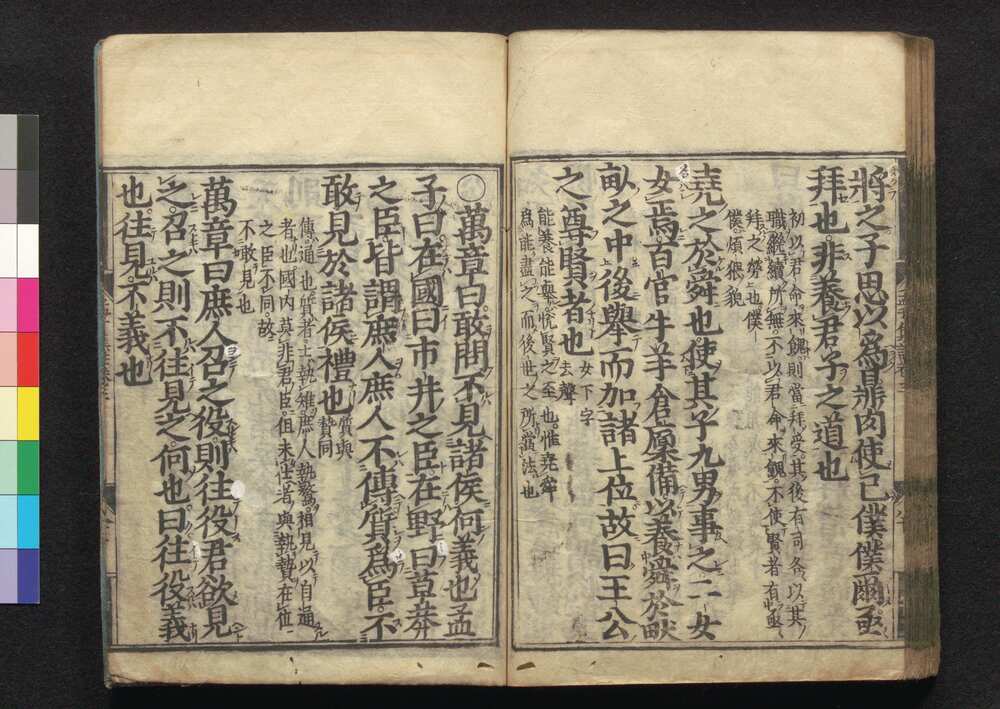 將之子思以爲鼎肉使己僕僕爾亟
拜也非養君子之道也
初以君命來餽則當拜受其後有司各以其
職繼續所無不以君命來餽不使賢者有亟
拜之勞也僕
僕煩猥貌
堯之於舜也使其子九男事之二女
女焉百官牛羊倉廩備以養舜於畎
畝之中後舉而加諸上位故曰王公
之尊賢者也
女下字
去聲
能養能舉悅賢之至也惟堯舜
爲能盡之而後世之所當法也
萬章曰敢問不見諸侯何義也孟
子曰在國曰市井之臣在野曰草莽
之臣皆謂庶人庶人不傳質爲臣不
敢見於諸侯禮也
質與
贄同
傳通也質者士執雉庶人執鶩相見以自通
者也國内莫非君臣但未仕者與執贄在位
之臣不同故
不敢見也
萬章曰庶人召之役則往役君欲見
之召之則不往見之何也曰往役義
也往見不義也